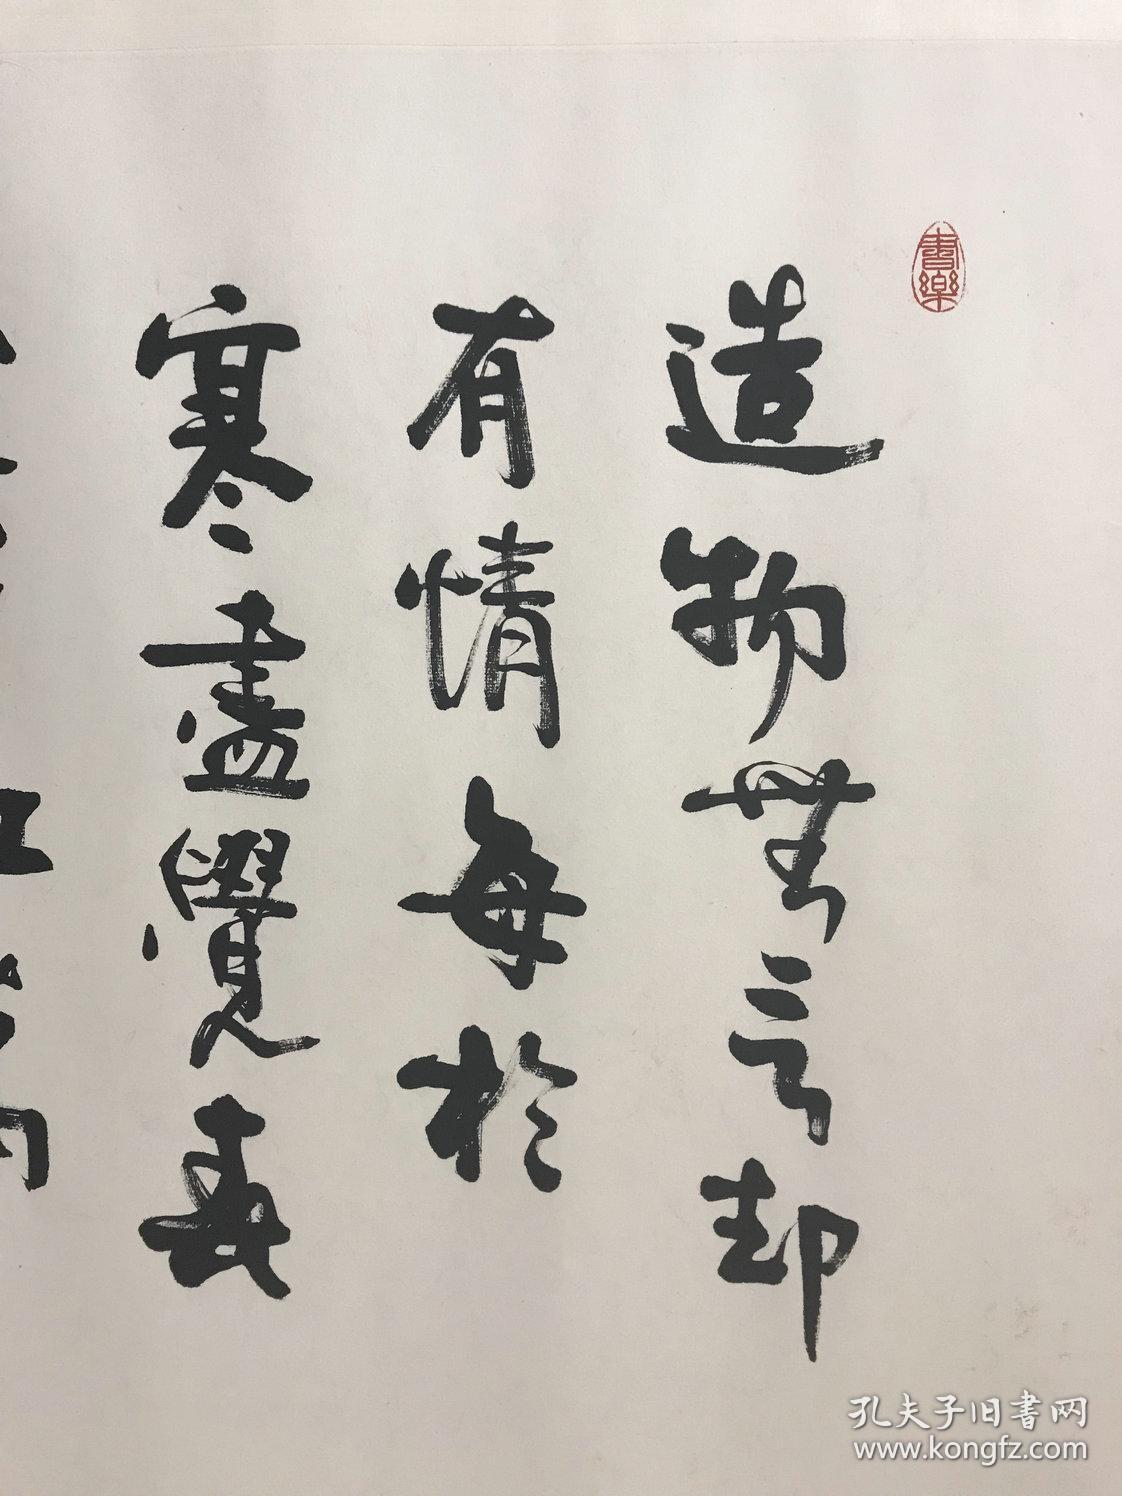 書樂
造物無言却
有情每於
寒盡覺春
孔夫子旧書网
www.kongfz.com